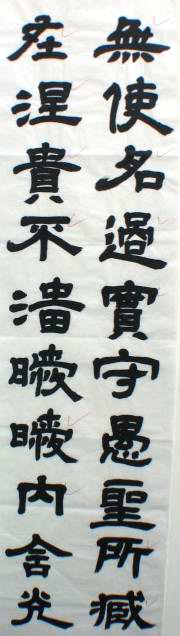 無使名過實守愚聖所臧
在涅貴不淄曖曖內含光